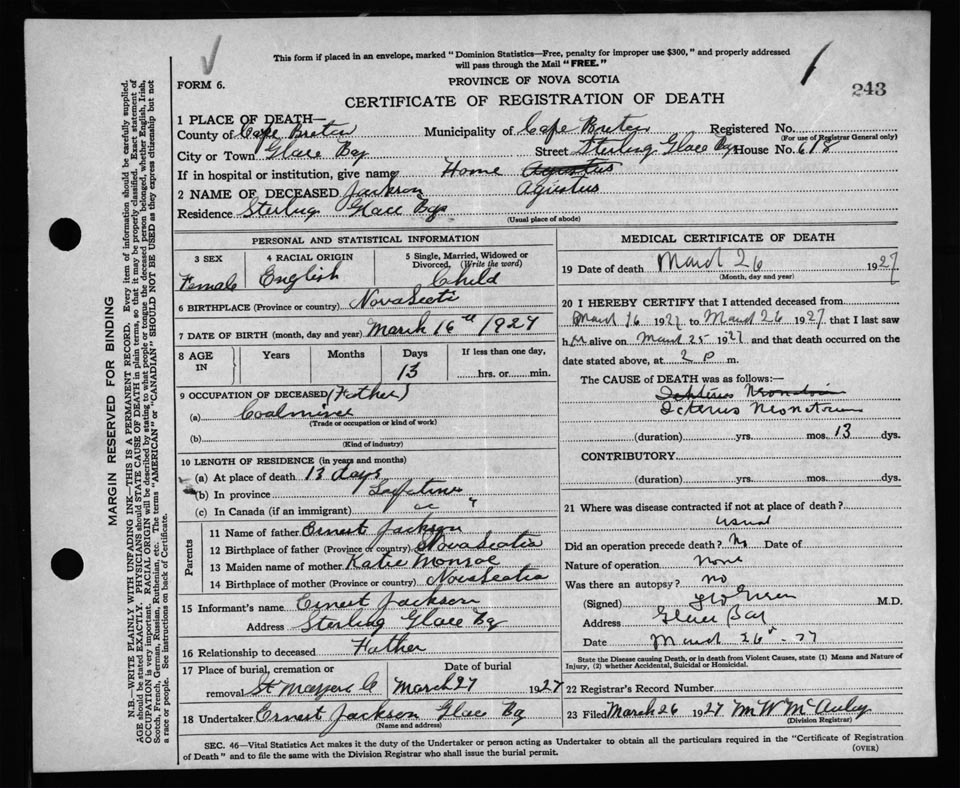 This form if placed in an envelope, marked "Dominion Statistics—Free, penalty for improper use $300," and properly addressed
will pass through the Mail "FREE."
FORM 6.
PROVINCE OF NOVA SCOTIA
243
CERTIFICATE OF REGISTRATION OF DEATH
1 PLACE OF DEATH—
County of Cape Breton Municipality of Cape Breton Registered No.
(For use of Registrar General only)
City or Town Glace Bay Street Sterling Glace Bay House No. 618
If in hospital or institution, give name Home Agustus
2 NAME OF DECEASED Jackson Agustus
Residence Sterling Glace Bay
(Usual place of abode)
PERSONAL AND STATISTICAL INFORMATION
3 SEX Female
4 RACIAL ORIGIN English
5 Single, Married, Widowed or Divorced, (Write the word) Child
6 BIRTHPLACE (Province or country) Nova Scoti
7 DATE OF BIRTH (month, day and year) March 16th 1927
8 AGE IN Years Months Days 13 If less than one day, hrs. or min.
9 OCCUPATION OF DECEASED (Father)
(a) Coalminer
(Trade or occupation or kind of work)
(b)
(Kind of industry)
10 LENGTH OF RESIDENCE (in years and months)
(a) At place of death 13 days
(b) In province Lifetime
(c) In Canada (if an immigrant) " "
Parents
11 Name of father Ernest Jackson
12 Birthplace of father (Province or country) Nova Scotia
13 Maiden name of mother Katie Monroe
14 Birthplace of mother (Province or country) Nova Scotia
15 Informant's name Ernest Jackson
Address Sterling Glace Bay
16 Relationship to deceased Father
17 Place of burial, cremation or removal St
Date of burial March 27 1927
18 Undertaker Ernest Jackson Glace Bay
(Name and address)
MEDICAL CERTIFICATE OF DEATH
19 Date of death March 26 1927
(Month, day and year)
20 I HEREBY CERTIFY that I attended deceased from
March 16 1927 to March 26 1927 that I last saw
her alive on March 25 1927 and that death occurred on the
date stated above, at 2 p m.
The CAUSE OF DEATH was as follows:—
Icterus Neonatorum
(duration) yrs. mos. 13 dys.
CONTRIBUTORY
(duration) yrs. mos. dys.
21 Where was disease contracted if not at place of death?
usual
Did an operation precede death? No Date of
Nature of operation None
Was there an autopsy? no
(Signed) M.D.
Address Glace Bay
Date March 26 - 27
State the Disease causing Death, or in death from Violent Causes, state (1) Means and Nature of
Injury, (2) whether Accidental, Suicidal or Homicidal.
22 Registrar's Record Number
23 Filed March 26 1927 M W McAuley
(Division Registrar)
SEC. 46—Vital Statistics Act makes it the duty of the Undertaker or person acting as Undertaker to obtain all the particulars required in the "Certificate of Registration
of Death" and to file the same with the Division Registrar who shall issue the burial permit.
(OVER)
MARGIN RESERVED FOR BINDING
N.B.—WRITE PLAINLY WITH UNFADING INK—THIS IS A PERMANENT RECORD. Every item of information should be carefully supplied.
AGE should be stated EXACTLY. PHYSICIANS should STATE CAUSE OF DEATH in plain terms, so that it may be properly classified. Exact statement of
OCCUPATION is very important. RACIAL ORIGIN will be described by stating to what people or tongue the deceased person belonged, whether English, Irish,
Scotch, French, German, Russian, Ruthenian, etc. The terms "AMERICAN" or "CANADIAN" SHOULD NOT BE USED as they express citizenship but not
a race or people. See instructions on back of Certificate.